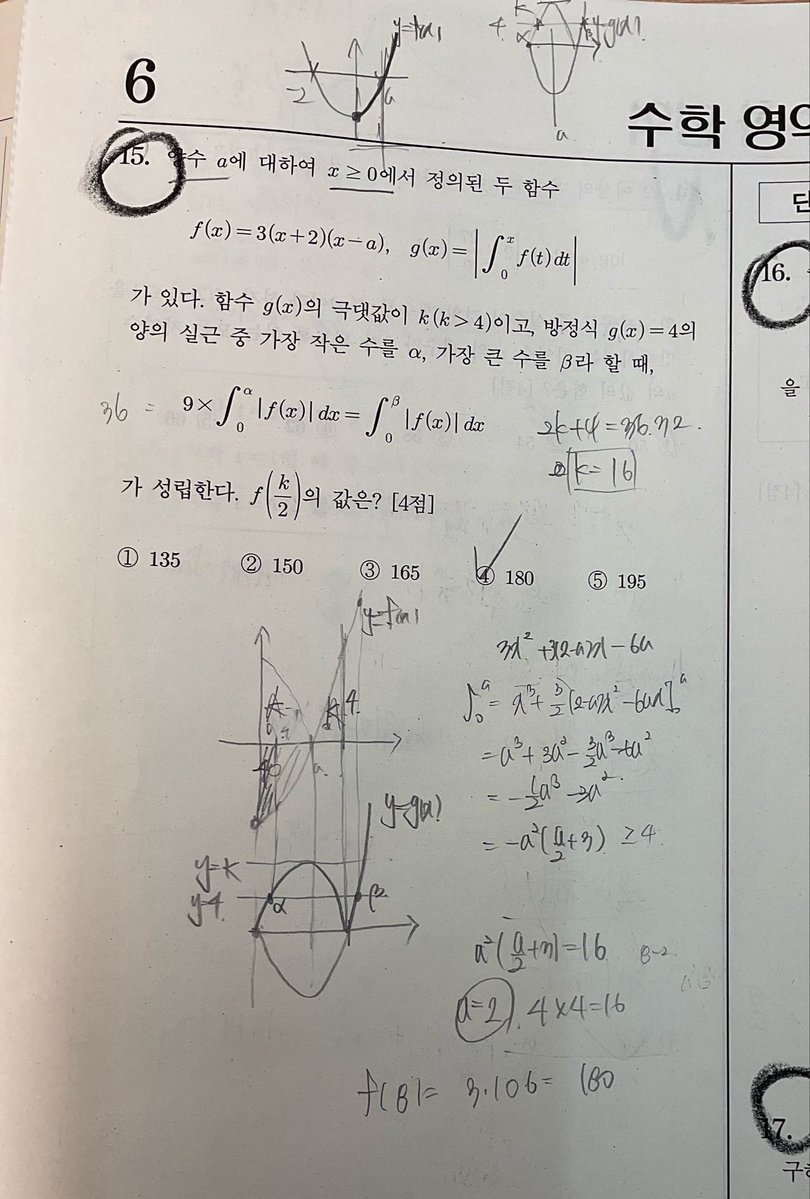 y=f(x)
k
4
α
y=g(x)
-2
a
a
6
수학 영역
15. 양수 a에 대하여 x≥0에서 정의된 두 함수
f(x)=3(x+2)(x-a), g(x)=|∫₀ˣ f(t)dt|
가 있다. 함수 g(x)의 극댓값이 k(k>4)이고, 방정식 g(x)=4의
양의 실근 중 가장 작은 수를 α, 가장 큰 수를 β라 할 때,
36 = 9×∫₀^α |f(x)|dx=∫₀^β |f(x)|dx
2k+4=36.32.
k=16
가 성립한다. f(k/2)의 값은? [4점]
① 135 ② 150 ③ 165 ④ 180 ⑤ 195
y=f(x)
k 4
a
3x²+3(2-a)x-6a
∫₀ᵃ = x³+3/2(2-a)x²-6ax]₀ᵃ
=a³+3a²-3/2a³-6a²
=-1/2a³-3a²
=-a²(a/2+3) ≥4
y=g(x)
y=k
y=4
α
β
a²(a/2+3)=16
a=2. 4×4=16
f(8)= 3·10·6= 180
단
16.
을
17.
구하